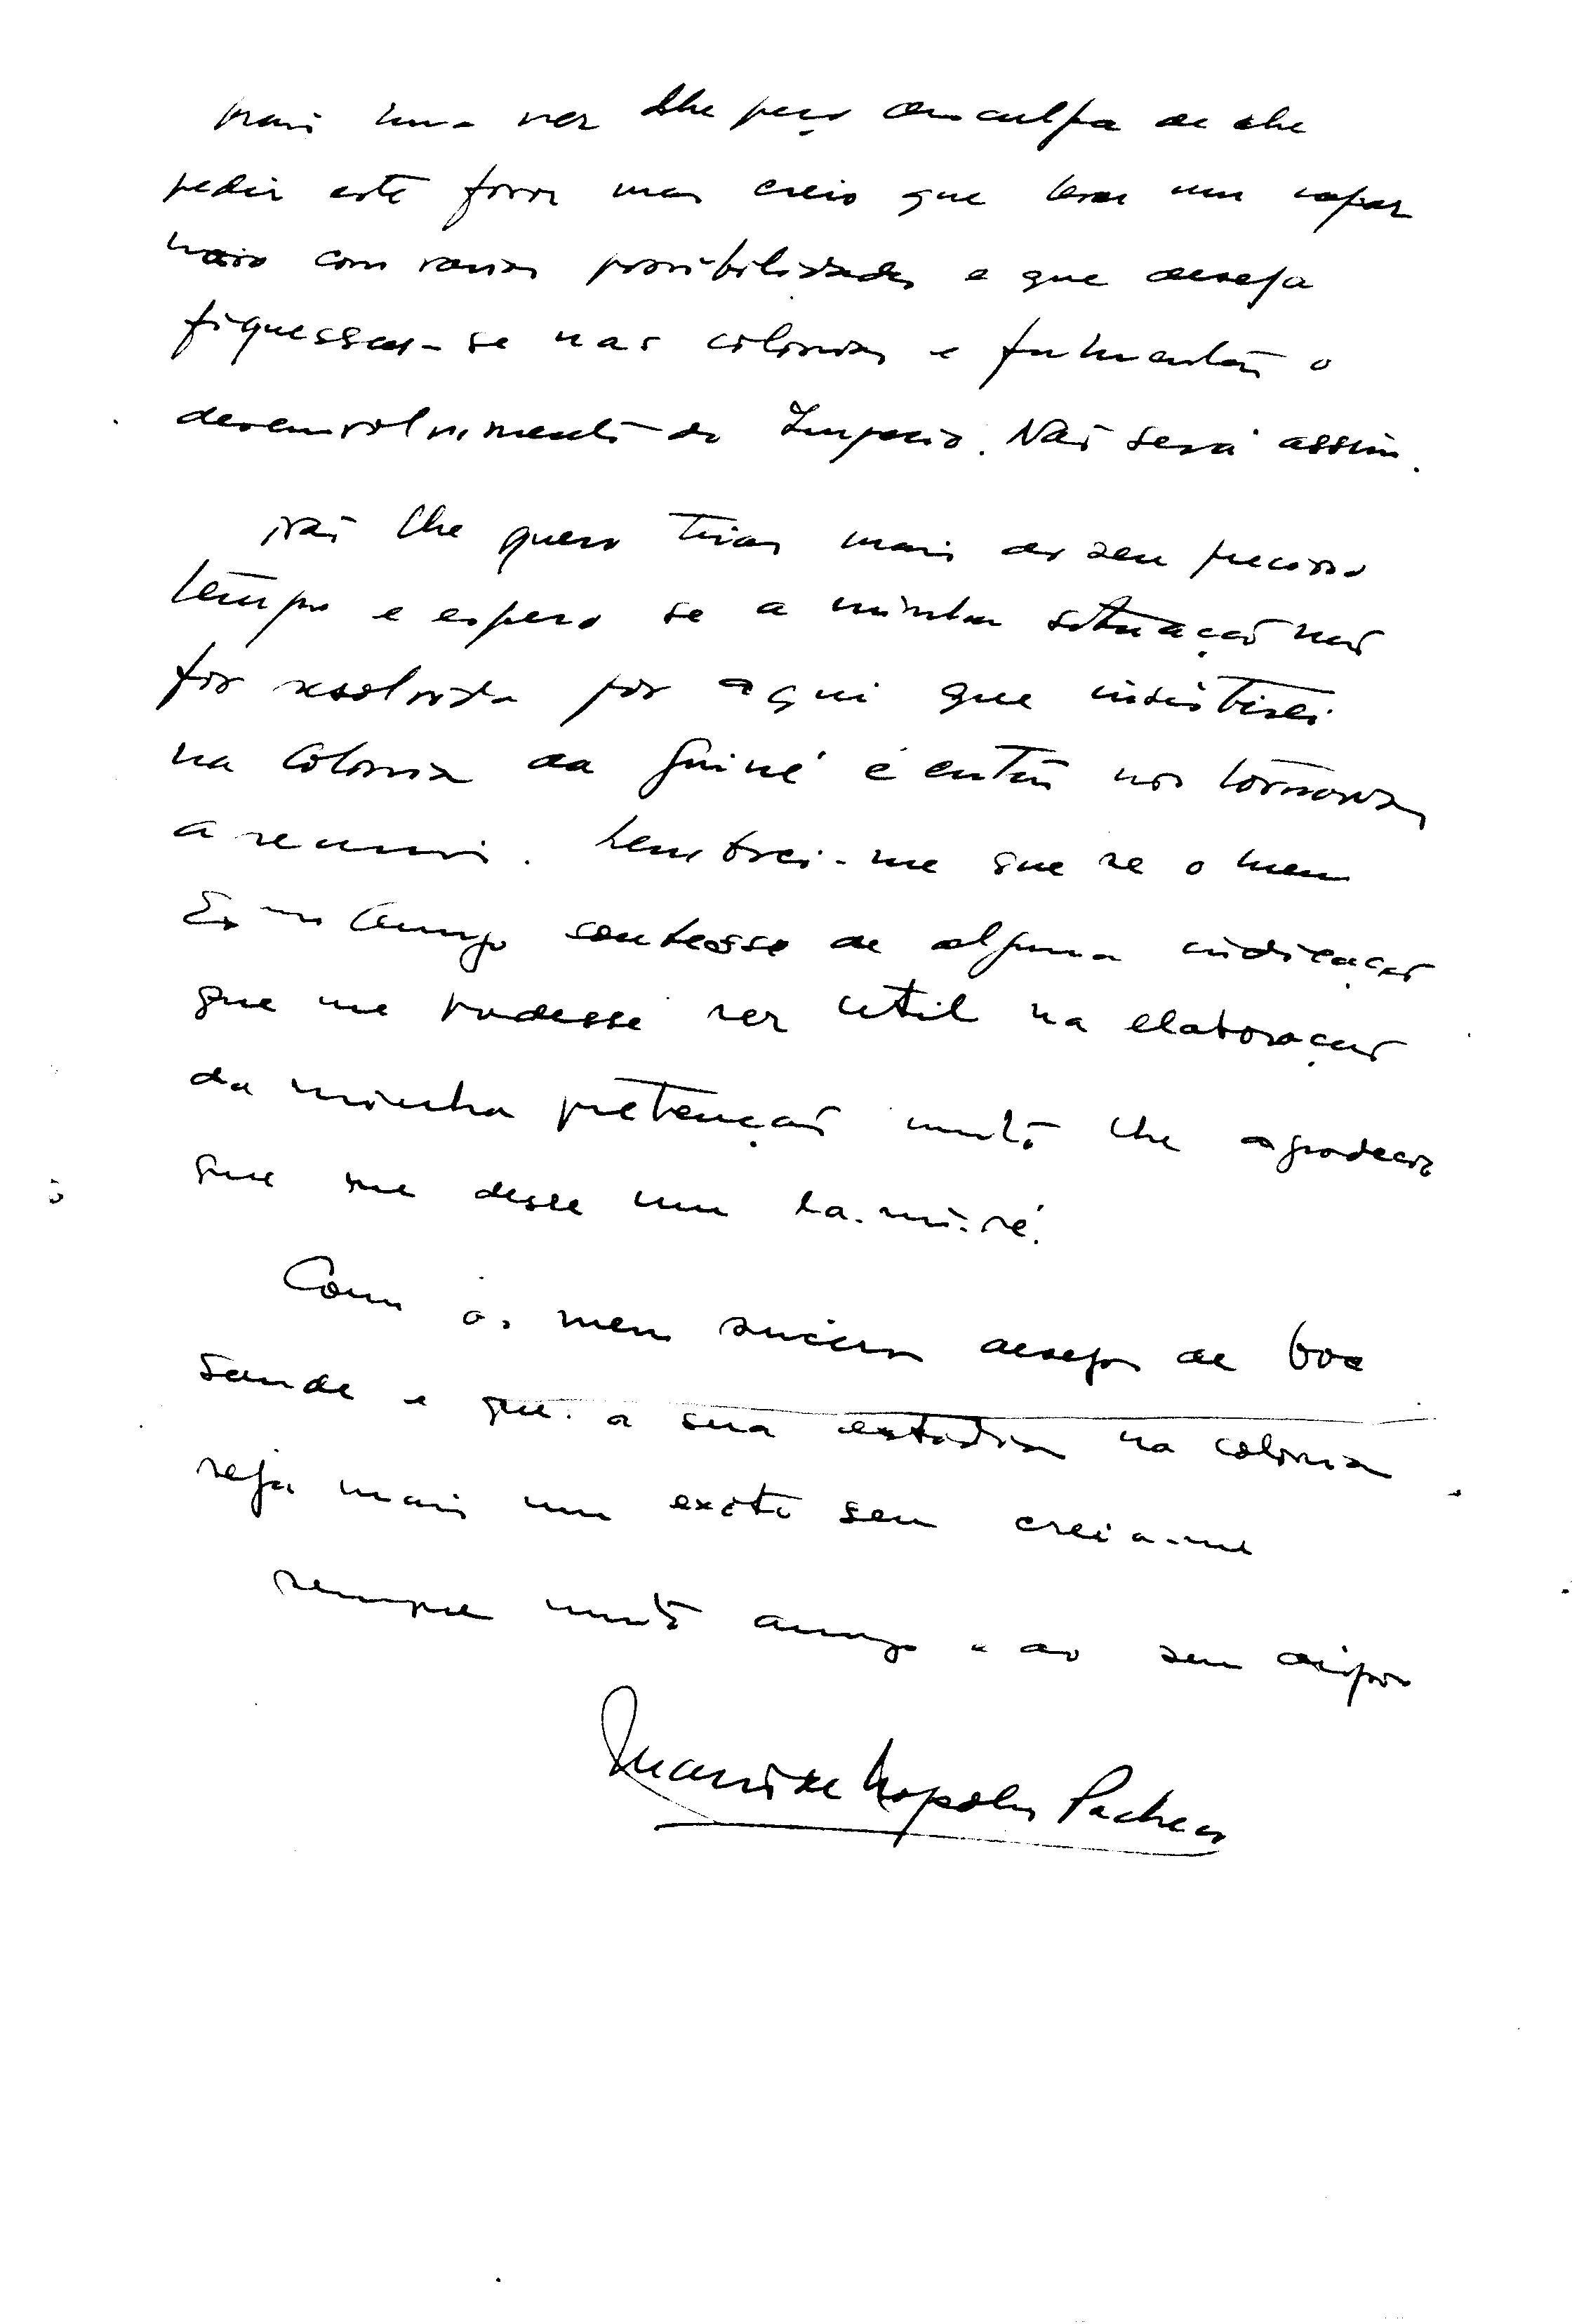 mais uma vez lhe peço desculpa de lhe
pedir este favor mas creio que levar um rapaz
novo com varias possibilidades e que deseja
se nas colonias e fomentar o
desenvolvimento do Imperio. Não será assim.
Não lhe quero tirar mais do seu precioso
tempo e espero se a minha situação não
for resolvida por aqui que insistirei
na Colonia da Guiné e então nos tornaremos
a reunir. Lembrei-me que se o meu
Exmo Amigo soubesse de alguma indicação
que me pudesse ser util na elaboração
da minha pretenção muito lhe agradecia
que me desse um la-mi-ré.
Com os meus sinceros desejos de boa
saude e que a sua estadia na colonia
seja mais um exito seu creia-me
sempre muito amigo e ao seu dispor
Pacheco